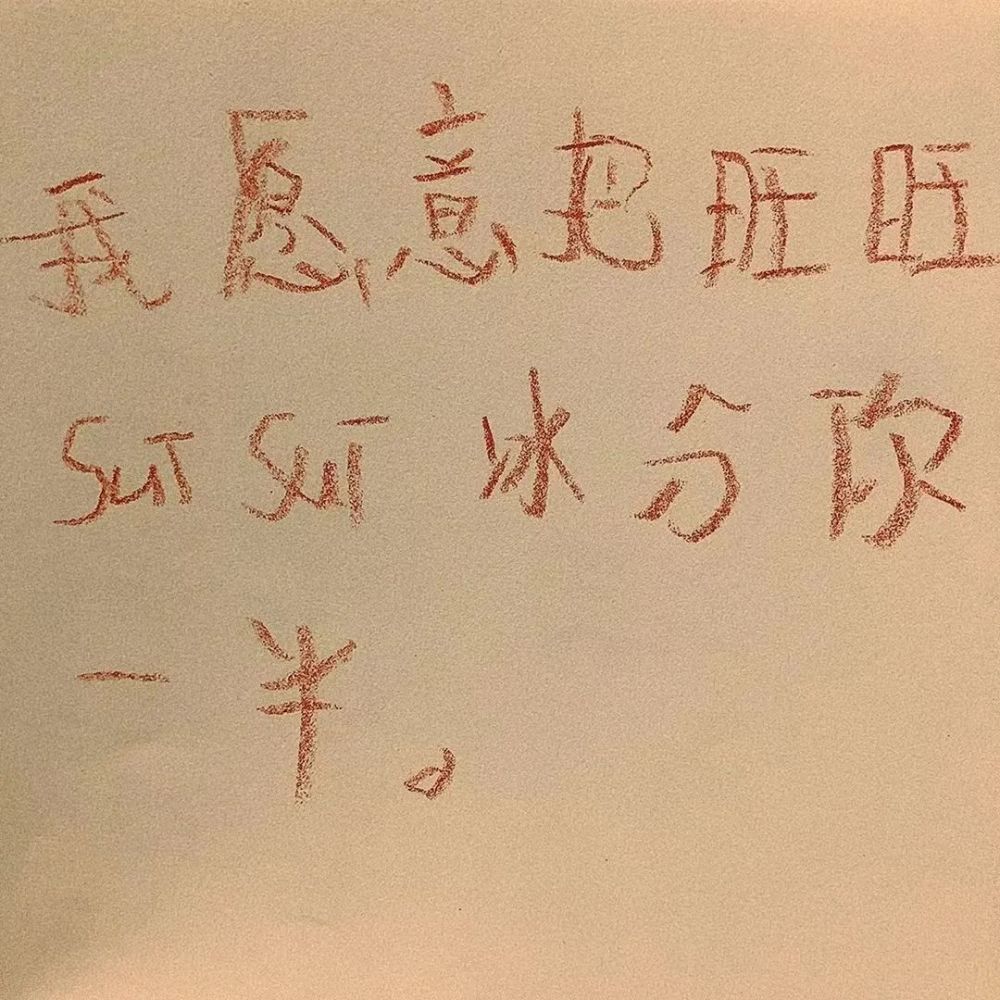 我愿意把旺旺
SuT SuT 冰分你
一半。